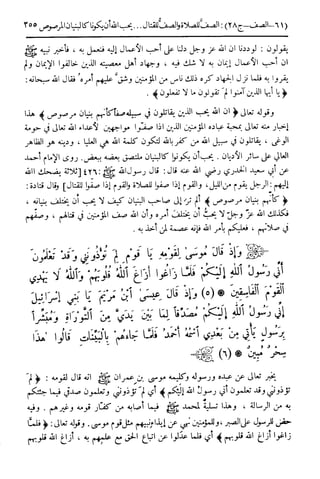 (٦١—الصف—ج٢٨): الصف للصلاة والصف للقتال... يحب الله أن يكونا كالبنيان المرصوص ٣٥٥
يقولون : لوددنا ان الله عز وجل دلنا على أحب الأعمال إليه فنعمل به ، فأخبر نبيه ﷺ
ان أحب الأعمال إيمان به لا شك فيه ، وجهاد أهل معصيته الذين خالفوا الإيمان ولم
يقروا به فلما نزل الجهاد كره ذلك ناس من المؤمنين وشق عليهم أمره؛ فقال الله سبحانه:
﴿ يا أيها الذين آمنوا لم تقولون ما لا تفعلون ﴾ .
وقوله تعالى ﴿ ان الله يحب الذين يقاتلون في سبيله صفاً كأنهم بنيان مرصوص ﴾ هذا
إخبار منه تعالى بمحبة عباده المؤمنين الذين اذا صفوا مواجهين لأعداء الله تعالى في حومة
الوغى ، يقاتلون في سبيل الله من كفر بالله لتكون كلمة الله هي العليا ، ودينه هو الظاهر
العالي على سائر الأديان . يحب أن يكونوا كالبنيان ملتصق بعضه ببعض. روى الإمام أحمد
عن أبي سعيد الخدري رضي الله عنه قال : قال رسول الله ﷺ : [٤٢٦] [ثلاثة يضحك الله
إليهم : الرجل يقوم من الليل، والقوم إذا صفوا للصلاة والقوم إذا صفوا للقتال] وقال قتادة :
﴿ كأنهم بنيان مرصوص ﴾ ألم تر إلى صاحب البنيان كيف لا يحب أن يختلف بنيانه ،
فكذلك الله عز وجل لا يحب أن يختلف أمره وأن الله صف المؤمنين في قتالهم ، وصفهم
في صلاتهم ، فعليكم بأمر الله فإنه عصمة لمن أخذ به .
وَإِذْ قَالَ مُوسَىٰ لِقَوْمِهِ يَا قَوْمِ لِمَ تُؤْذُونَنِي وَقَد تَّعْلَمُونَ
أَنِّي رَسُولُ اللَّهِ إِلَيْكُمْ فَلَمَّا زَاغُوا أَزَاغَ اللَّهُ قُلُوبَهُمْ وَاللَّهُ لَا يَهْدِي
الْقَوْمَ الْفَاسِقِينَ * (٥) وَإِذْ قَالَ عِيسَى ابْنُ مَرْيَمَ يَا بَنِي إِسْرَائِيلَ
إِنِّي رَسُولُ اللَّهِ إِلَيْكُم مُّصَدِّقًا لِّمَا بَيْنَ يَدَيَّ مِنَ التَّوْرَاةِ وَمُبَشِّرًا
بِرَسُولٍ يَأْتِي مِن بَعْدِي اسْمُهُ أَحْمَدُ فَلَمَّا جَاءَهُم بِالْبَيِّنَاتِ قَالُوا هَٰذَا
سِحْرٌ مُّبِينٌ * (٦)
يخبر تعالى عن عبده ورسوله وكليمه موسى بن عمران ﷺ انه قال لقومه : ﴿ لم
تؤذونني وقد تعلمون أني رسول الله إليكم ﴾ أي لم تؤذونني وتعلمون صدقي فيما جئتكم
به من الرسالة ، وهذا تسلية لمحمد ﷺ فيما أصابه من كفار قومه وغيرهم . وفيه
حض للرسول على الصبر، وللمؤمنين نهي عن إيذاء نبيهم مثل قوم موسى. وقوله تعالى: ﴿ فلما
زاغوا أزاغ الله قلوبهم ﴾ أي فلما عدلوا عن اتباع الحق مع علمهم به ، أزاغ الله قلوبهم